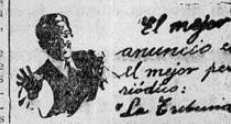 El mejor
anuncio e
el mejor per
riódico:
"La Tribuna